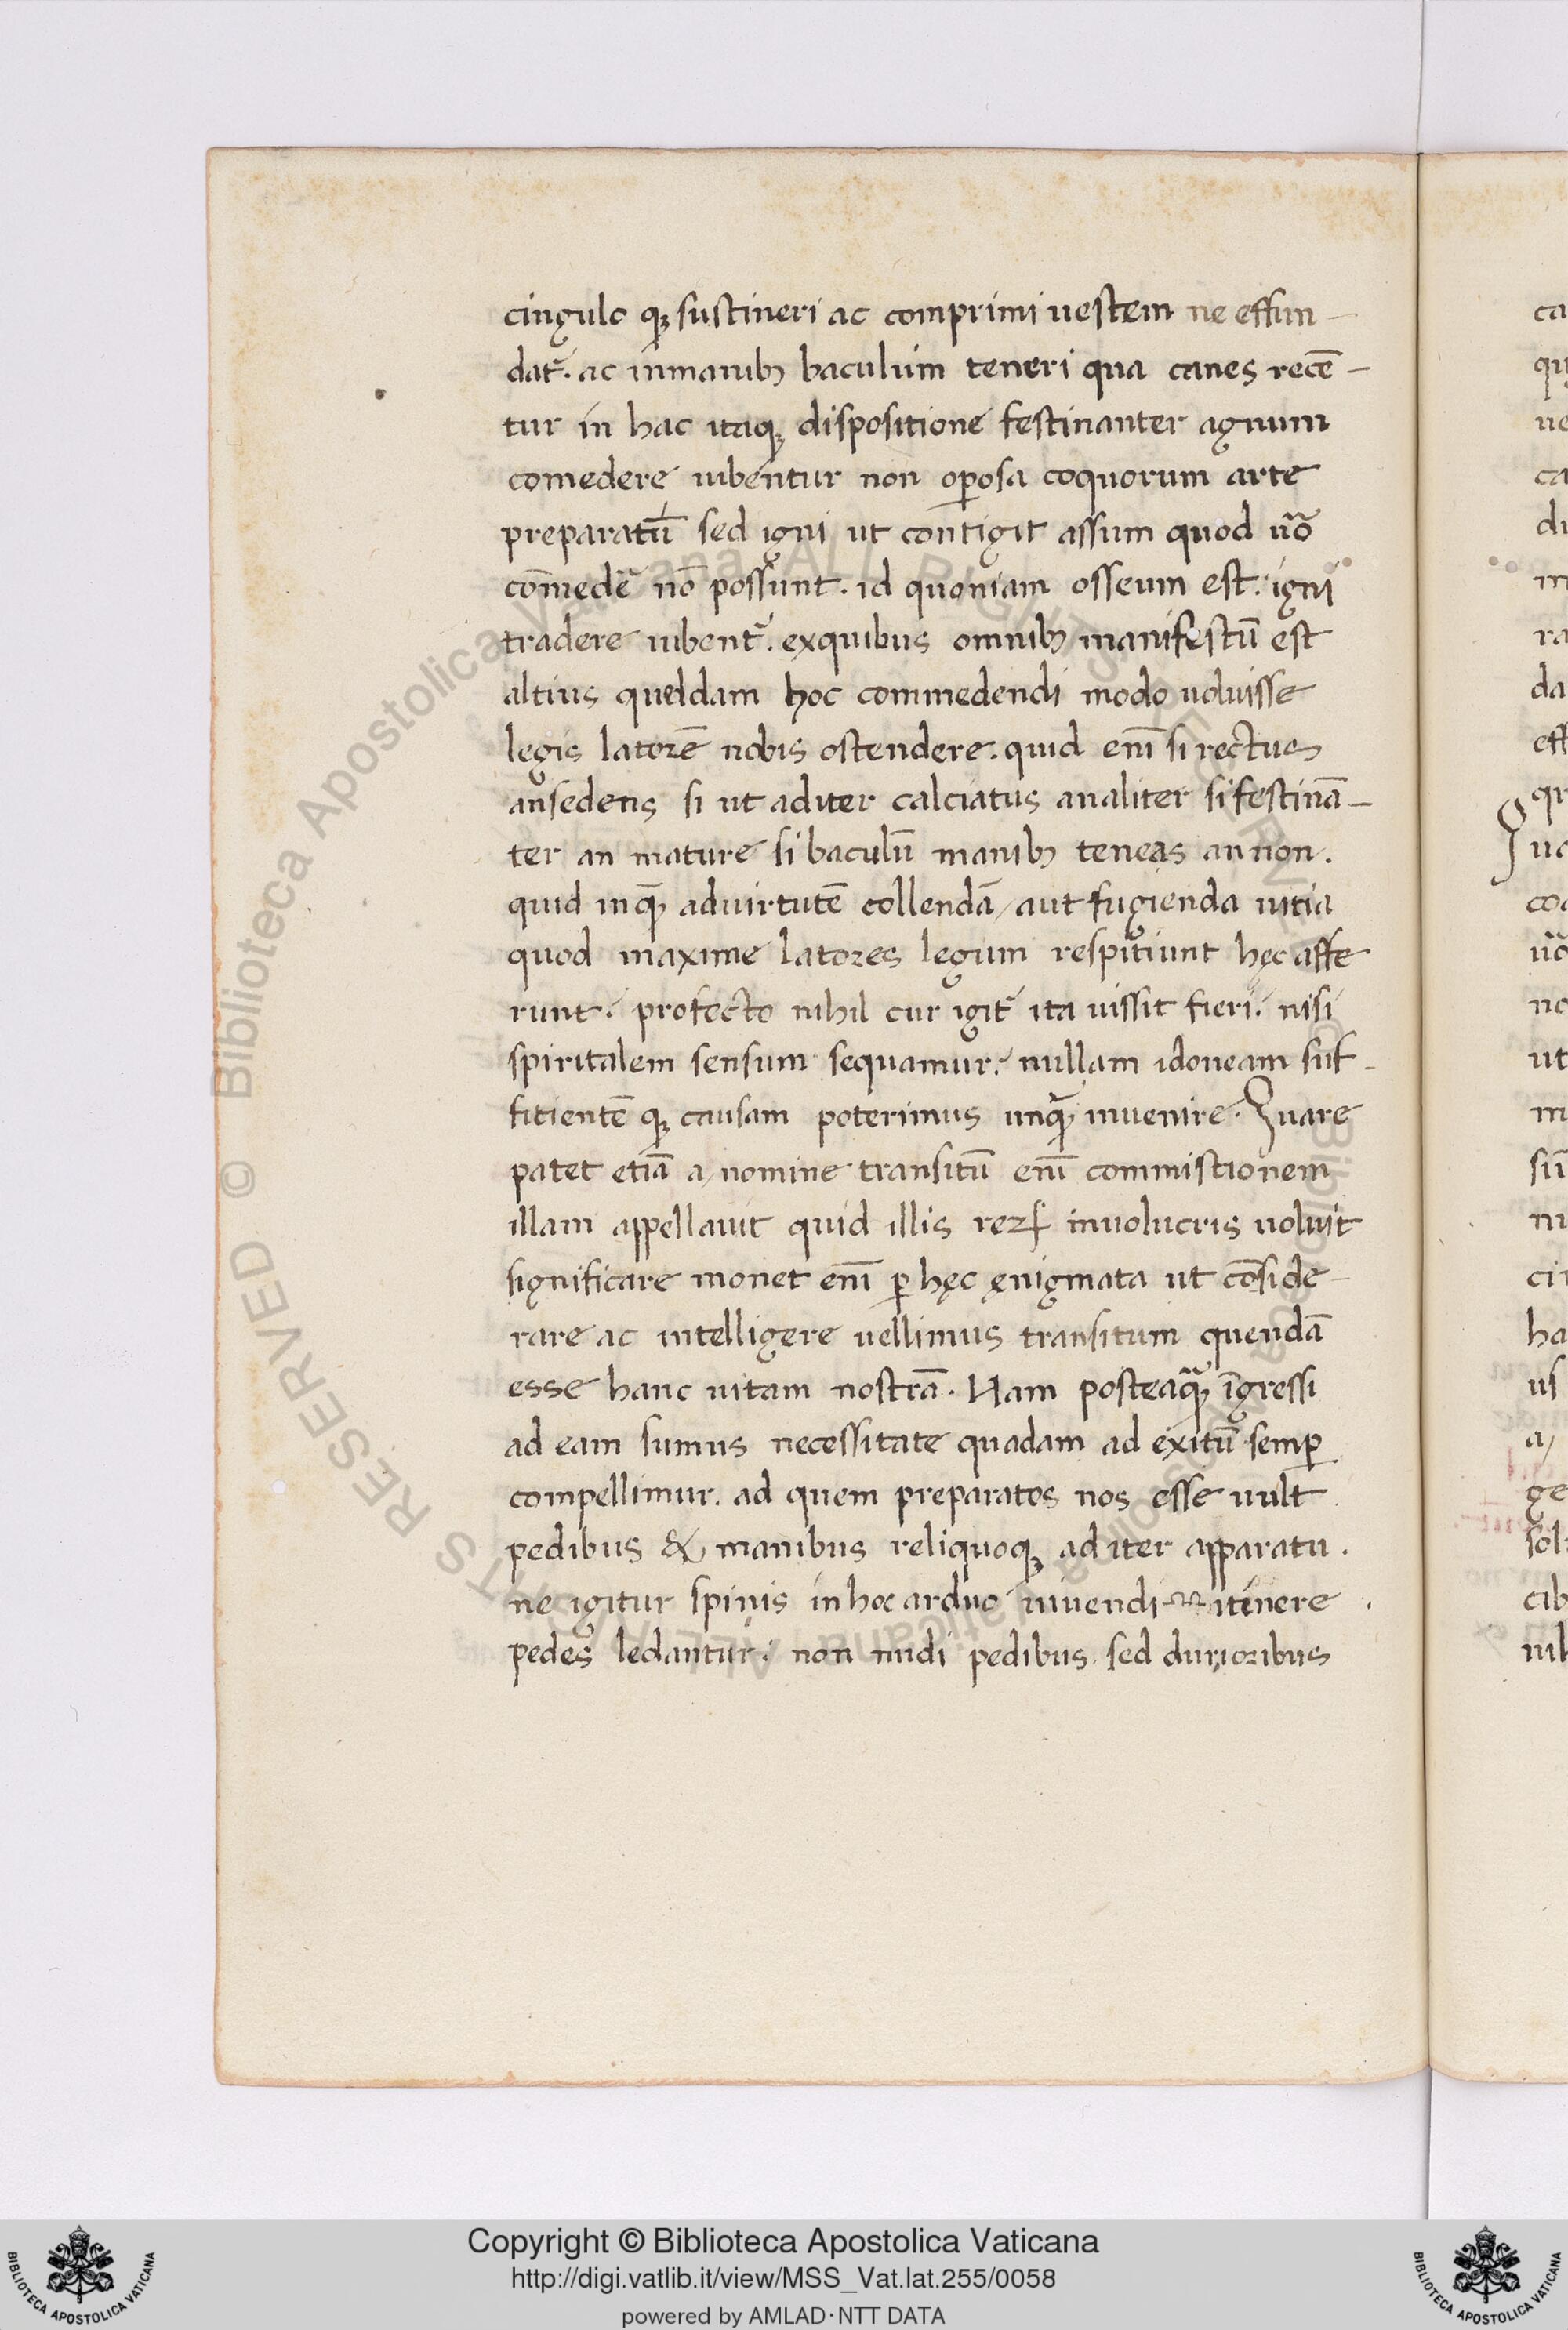 cingulo qꝫ sustineri ac comprimi uestem ne effun-
dat᷑. ac inmanibꝫ baculum teneri qua canes recē-
tur in hac itaqꝫ dispositione festinanter agnum
comedere iubentur non oꝑosa coquorum arte
preparatū sed igni ut contigit assum quod ūo
com̄edē nō possunt. id quoniam osseum est. igni
tradere iubent᷑. exquibus omnibꝫ manifestū est
altius queddam hoc commedendi modo uoluisse
legis latorē nobis ostendere. quid eni̅ si rectus
ansedens si ut aditer calciatus analiter si festinā-
ter an mature si baculū manibꝫ teneas an non.
quid inqꝫ aduirtutē collendā / aut fugienda uitia
quod maxime latores legum respitiunt hęc affe
runt. profecto nihil cur igit᷑ ita iussit fieri. nisi
spiritalem sensum sequamur. nullam idoneam suf-
fitientē qꝫ causam poterimus unqꝫ inuenire. Quare
patet etiā a / nomine transitū eni̅ commistionem
illam appellauit quid illis reꝝ inuolucris uoluit
significare monet eni̅ ꝑ hęc ęnigmata ut cōside-
rare ac intelligere uellimus transitum quendā
esse hanc uitam nostrā. Nam posteaqꝫ īgressi
ad eam sumus necessitate quadam ad exitū semꝑ
compellimur. ad quem preparatos nos esse uult
pedibus & manibus reliquoqꝫ ad iter apparatu.
ne igitur spinis in hoc arduo uiuendi itinere
pedes ledantur. non nudi pedibus sed durioribus
Copyright © Biblioteca Apostolica Vaticana
http://digi.vatlib.it/view/MSS_Vat.lat.255/0058
powered by AMLAD·NTT DATA